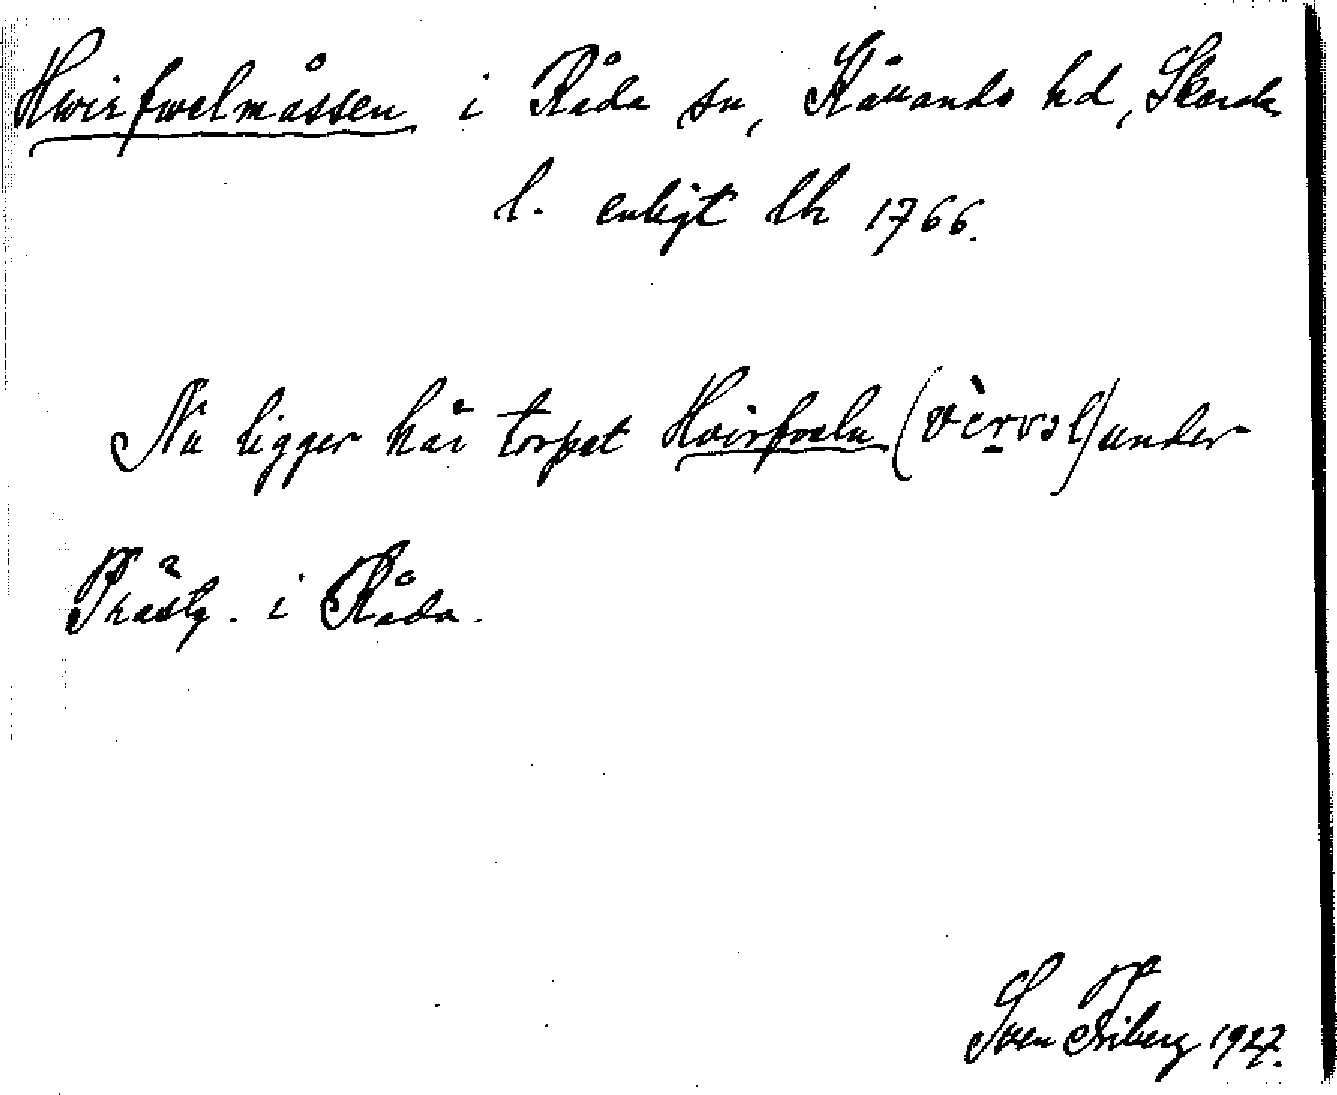 Hwirfwelmåssen i Råda sn, Kållands hd, Skarab.
l. enligt lh 1766.
Nu ligger här torpet Hvirfveln (vèrvəl) under
Prästg. i Råda.
Sven Friberg 1927.